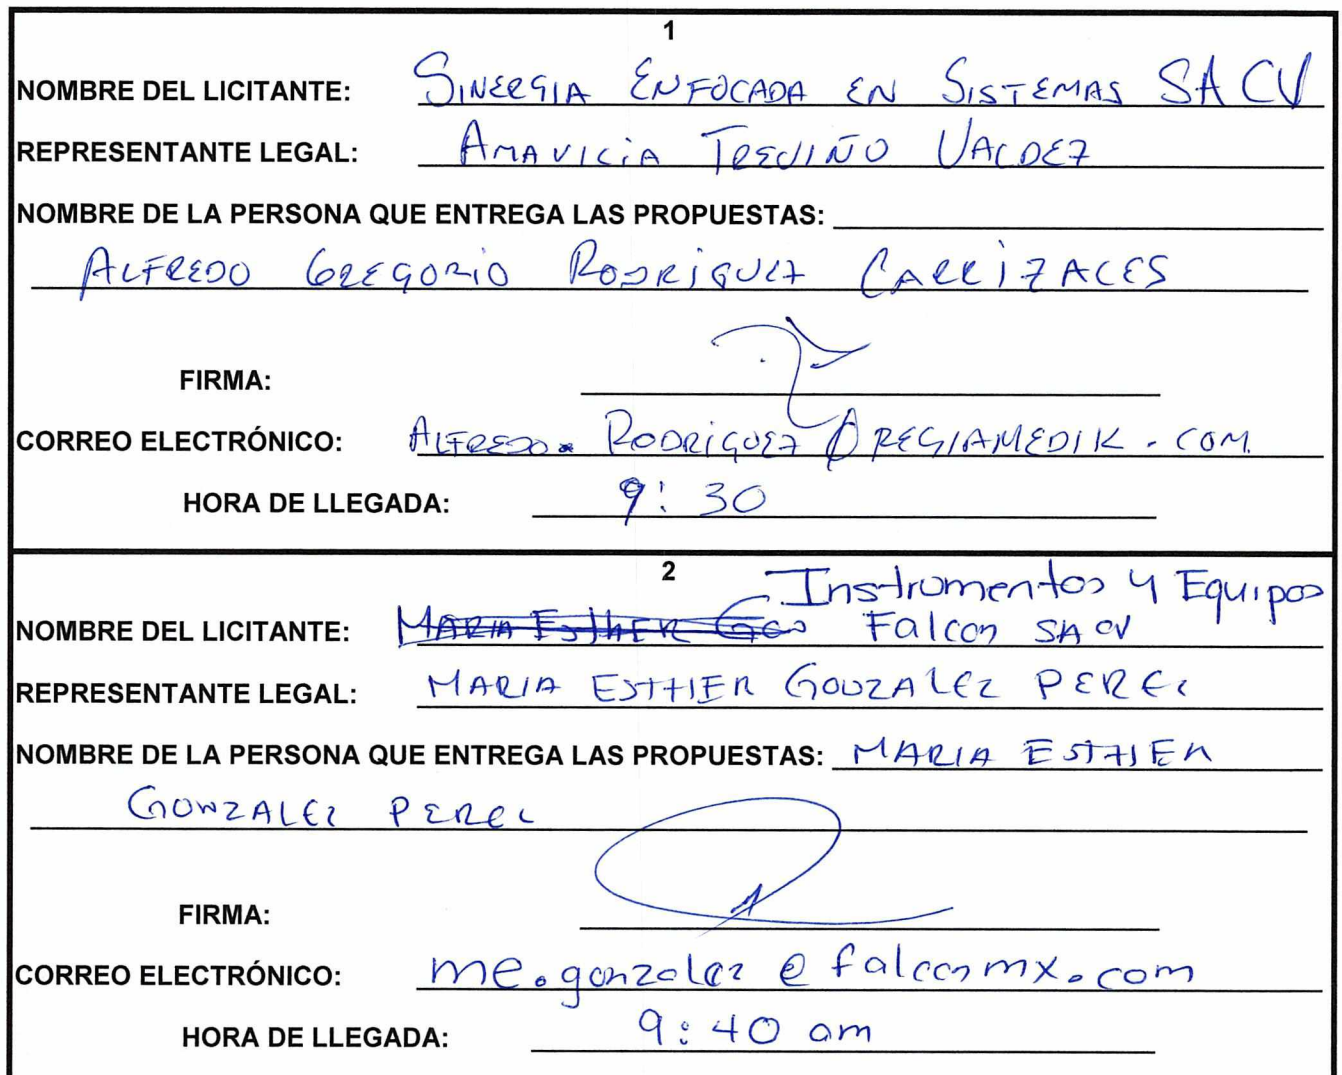 1
NOMBRE DEL LICITANTE: SINERGIA ENFOCADA EN SISTEMAS SA CV
REPRESENTANTE LEGAL: AMAVICIA TREVIÑO VALDEZ
NOMBRE DE LA PERSONA QUE ENTREGA LAS PROPUESTAS:
ALFREDO GREGORIO RODRIGUEZ CARRIZALES
FIRMA:
CORREO ELECTRÓNICO: ALFREDO.RODRIGUEZ@REGIAMEDIK.COM
HORA DE LLEGADA: 9:30
2
Instrumentos y Equipos
NOMBRE DEL LICITANTE: MARIA ESTHER Falcon SA CV
REPRESENTANTE LEGAL: MARIA ESTHER GONZALEZ PEREZ
NOMBRE DE LA PERSONA QUE ENTREGA LAS PROPUESTAS: MARIA ESTHER
GONZALEZ PEREZ
FIRMA:
CORREO ELECTRÓNICO: me.gonzalez@falconmx.com
HORA DE LLEGADA: 9:40 am